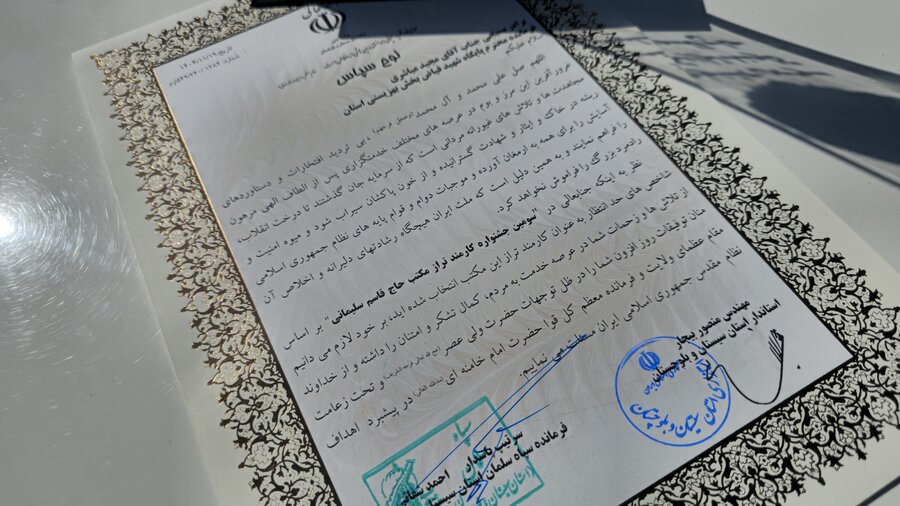 تاریخ: ۱۴۰۴/۱۱/۱۹
لوح سپاس
جناب آقای مجید صابری
فرمانده محترم پایگاه شهید فیاض بخش بهزیستی استان
سلام علیکم
اللهم صل علی محمد و آل محمد (وعجل فرجهم) ،بی تردید افتخارات و دستاوردهای
غرور آفرین این مرز و بوم در عرصه های مختلف خدمتگزاری پس از الطاف الهی مرهون
مجاهدت‌ها و تلاش های غیورانه مردانی است که از سرمایه جان گذشتند تا درخت انقلاب،
ریشه در خاک و ایثار و شهادت گسترانیده و از خون پاکشان سیراب شود و میوه امنیت و
آسایش را برای همه به ارمغان آورده و موجبات دوام و قوام پایه های نظام جمهوری اسلامی
را فراهم نمایند و به همین دلیل است که ملت ایران هیچگاه رشادتهای دلیرانه و اخلاص آن
رادمرد بزرگ را فراموش نخواهد کرد.
نظر به اینکه جنابعالی در " سومین جشنواره کارمند تراز مکتب حاج قاسم سلیمانی " بر اساس
شاخص های حد انتظار به عنوان کارمند تراز این مکتب انتخاب شده اید، بر خود لازم می دانیم
از تلاش ها و زحمات شما در عرصه خدمت به مردم، کمال تشکر و امتنان را داشته و از خداوند
منان توفیقات روز افزون شما را در ظل توجهات حضرت ولی عصر و تحت زعامت
مقام عظمای ولایت و فرمانده معظم کل قوا حضرت امام خامنه ای (مدظله العالی) در پیشبرد اهداف
نظام مقدس جمهوری اسلامی ایران مسئلت می نماییم.
مهندس منصور بیجار
استاندار استان سیستان و بلوچستان
سرتیپ پاسدار احمد شفائی
فرمانده سپاه سلمان استان سیستان